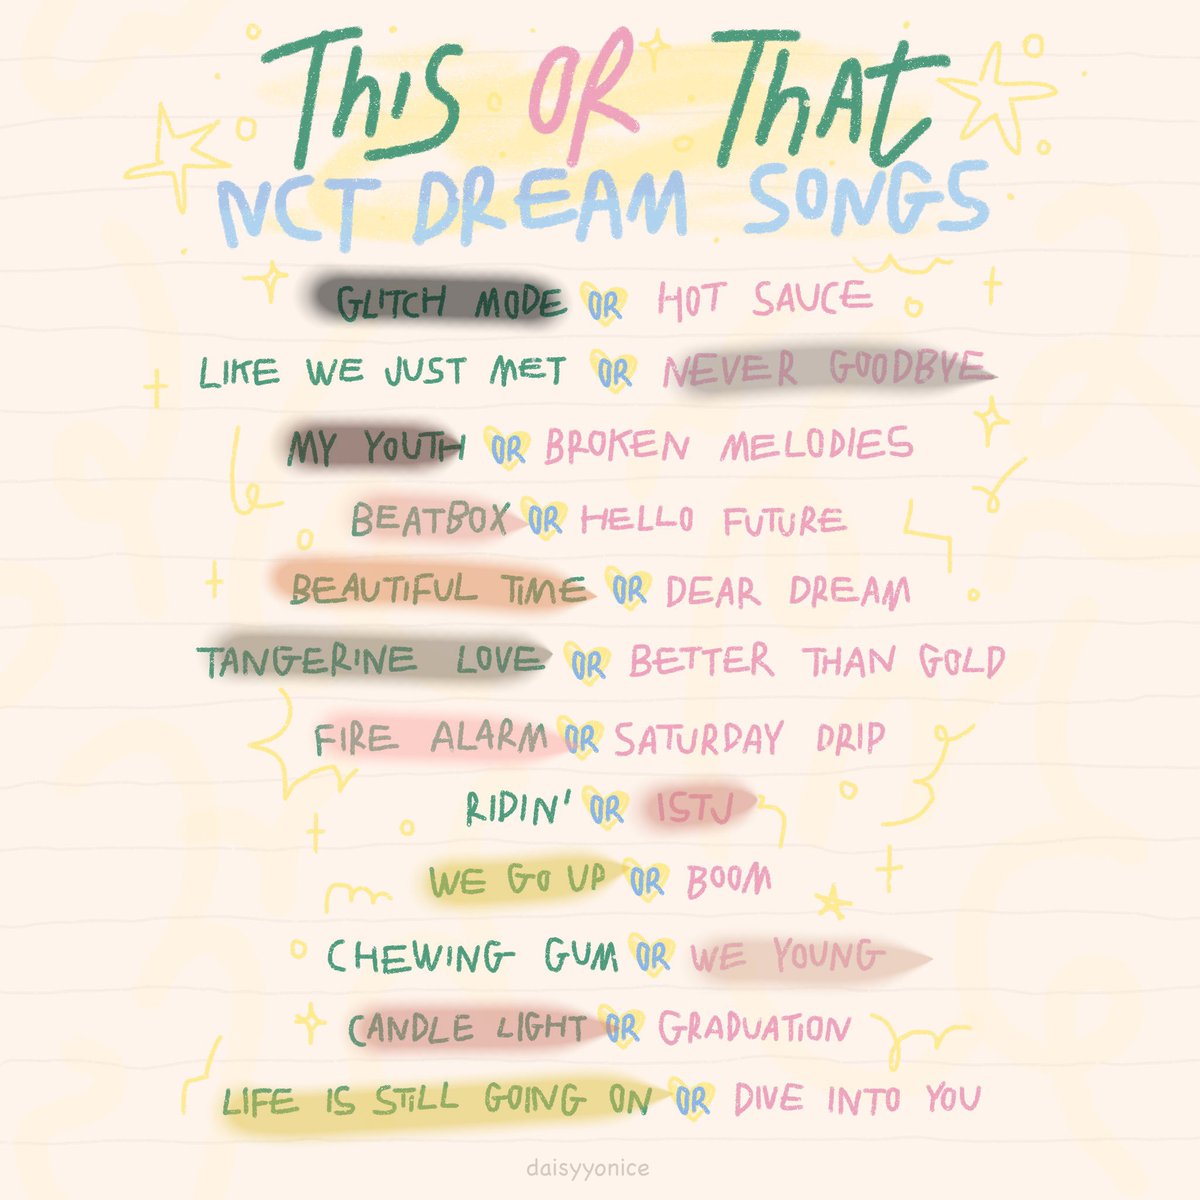 THIS OR THAT
NCT DREAM SONGS
GLITCH MODE OR HOT SAUCE
LIKE WE JUST MET OR NEVER GOODBYE
MY YOUTH OR BROKEN MELODIES
BEATBOX OR HELLO FUTURE
BEAUTIFUL TIME OR DEAR DREAM
TANGERINE LOVE OR BETTER THAN GOLD
FIRE ALARM OR SATURDAY DRIP
RIDIN' OR ISTJ
WE GO UP OR BOOM
CHEWING GUM OR WE YOUNG
CANDLE LIGHT OR GRADUATION
LIFE IS STILL GOING ON OR DIVE INTO YOU
daisyyonice